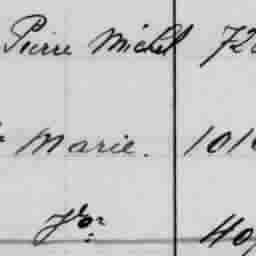 Pierre Michel 72
Marie. 101
Jos: 40